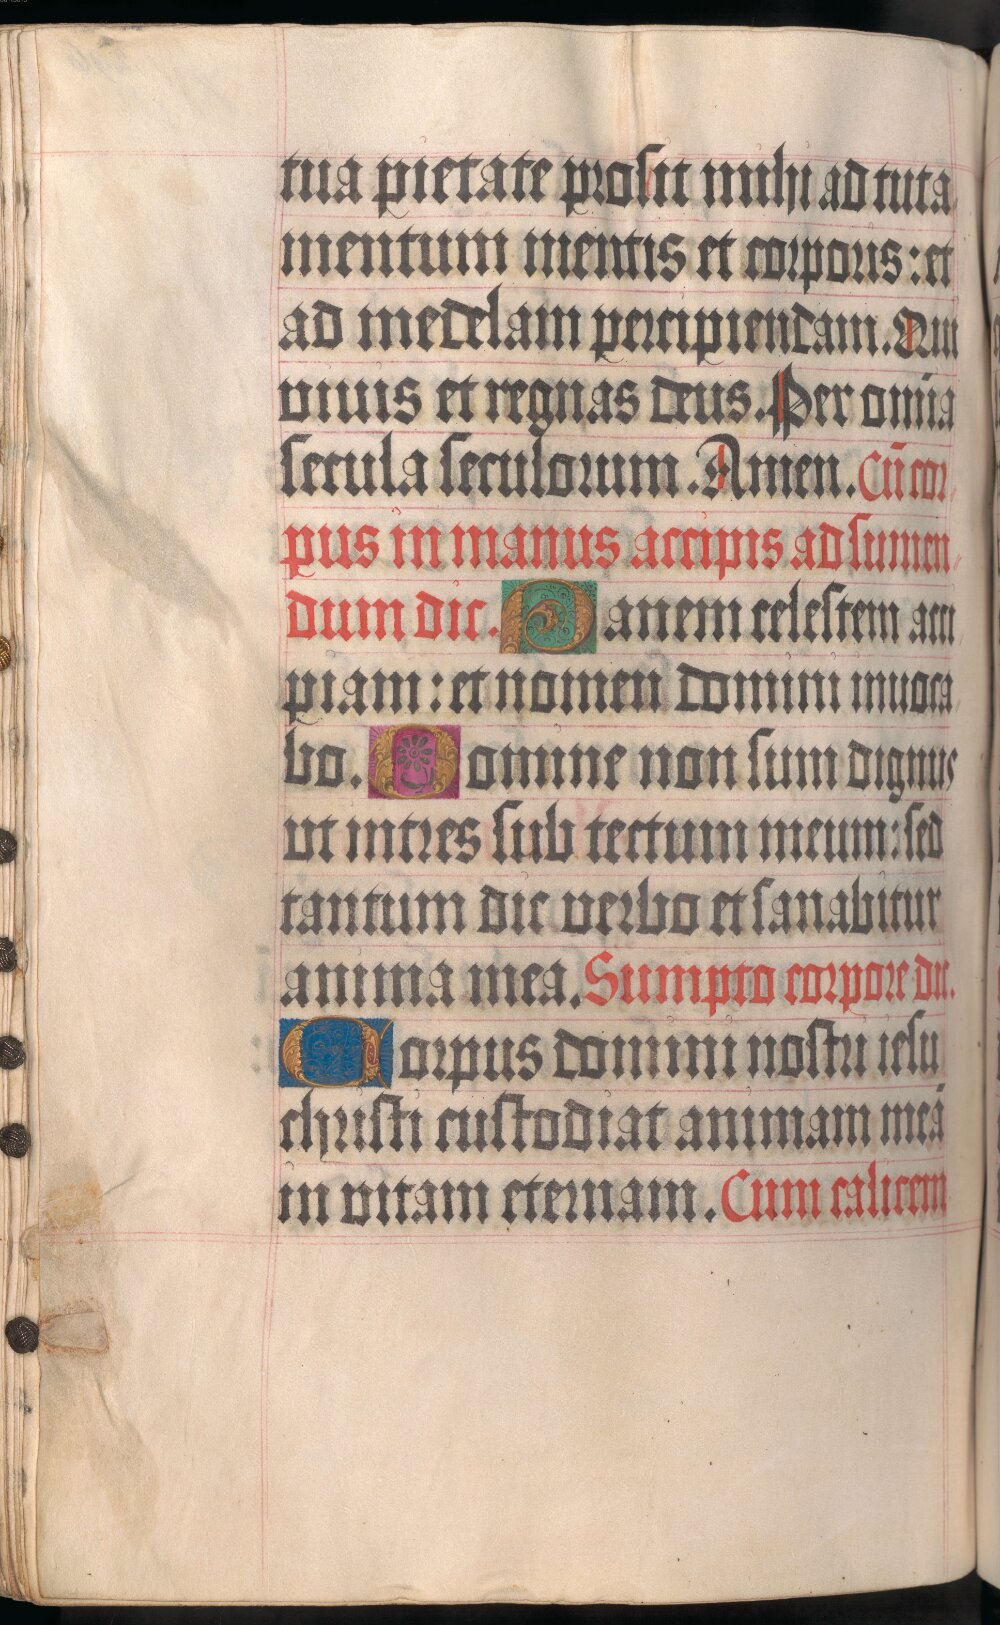 tua pietate prosit mihi ad tuta
mentum mentis et corporis: et
ad medelam percipiendam. Qui
viuis et regnas deus. Per om̄ia
secula seculorum. Amen. Cū cor
pus in manus accipis ad sumen
dum dic. Panem celestem acci
piam: et nomen domini inuoca
bo. Domine non sum dignus
ut intres sub tectum meum: sed
tantum dic verbo et sanabitur
anima mea. Sumpto corpore dic.
Corpus domini nostri iesu
christi custodiat animam meā
in vitam eternam. Cum calicem